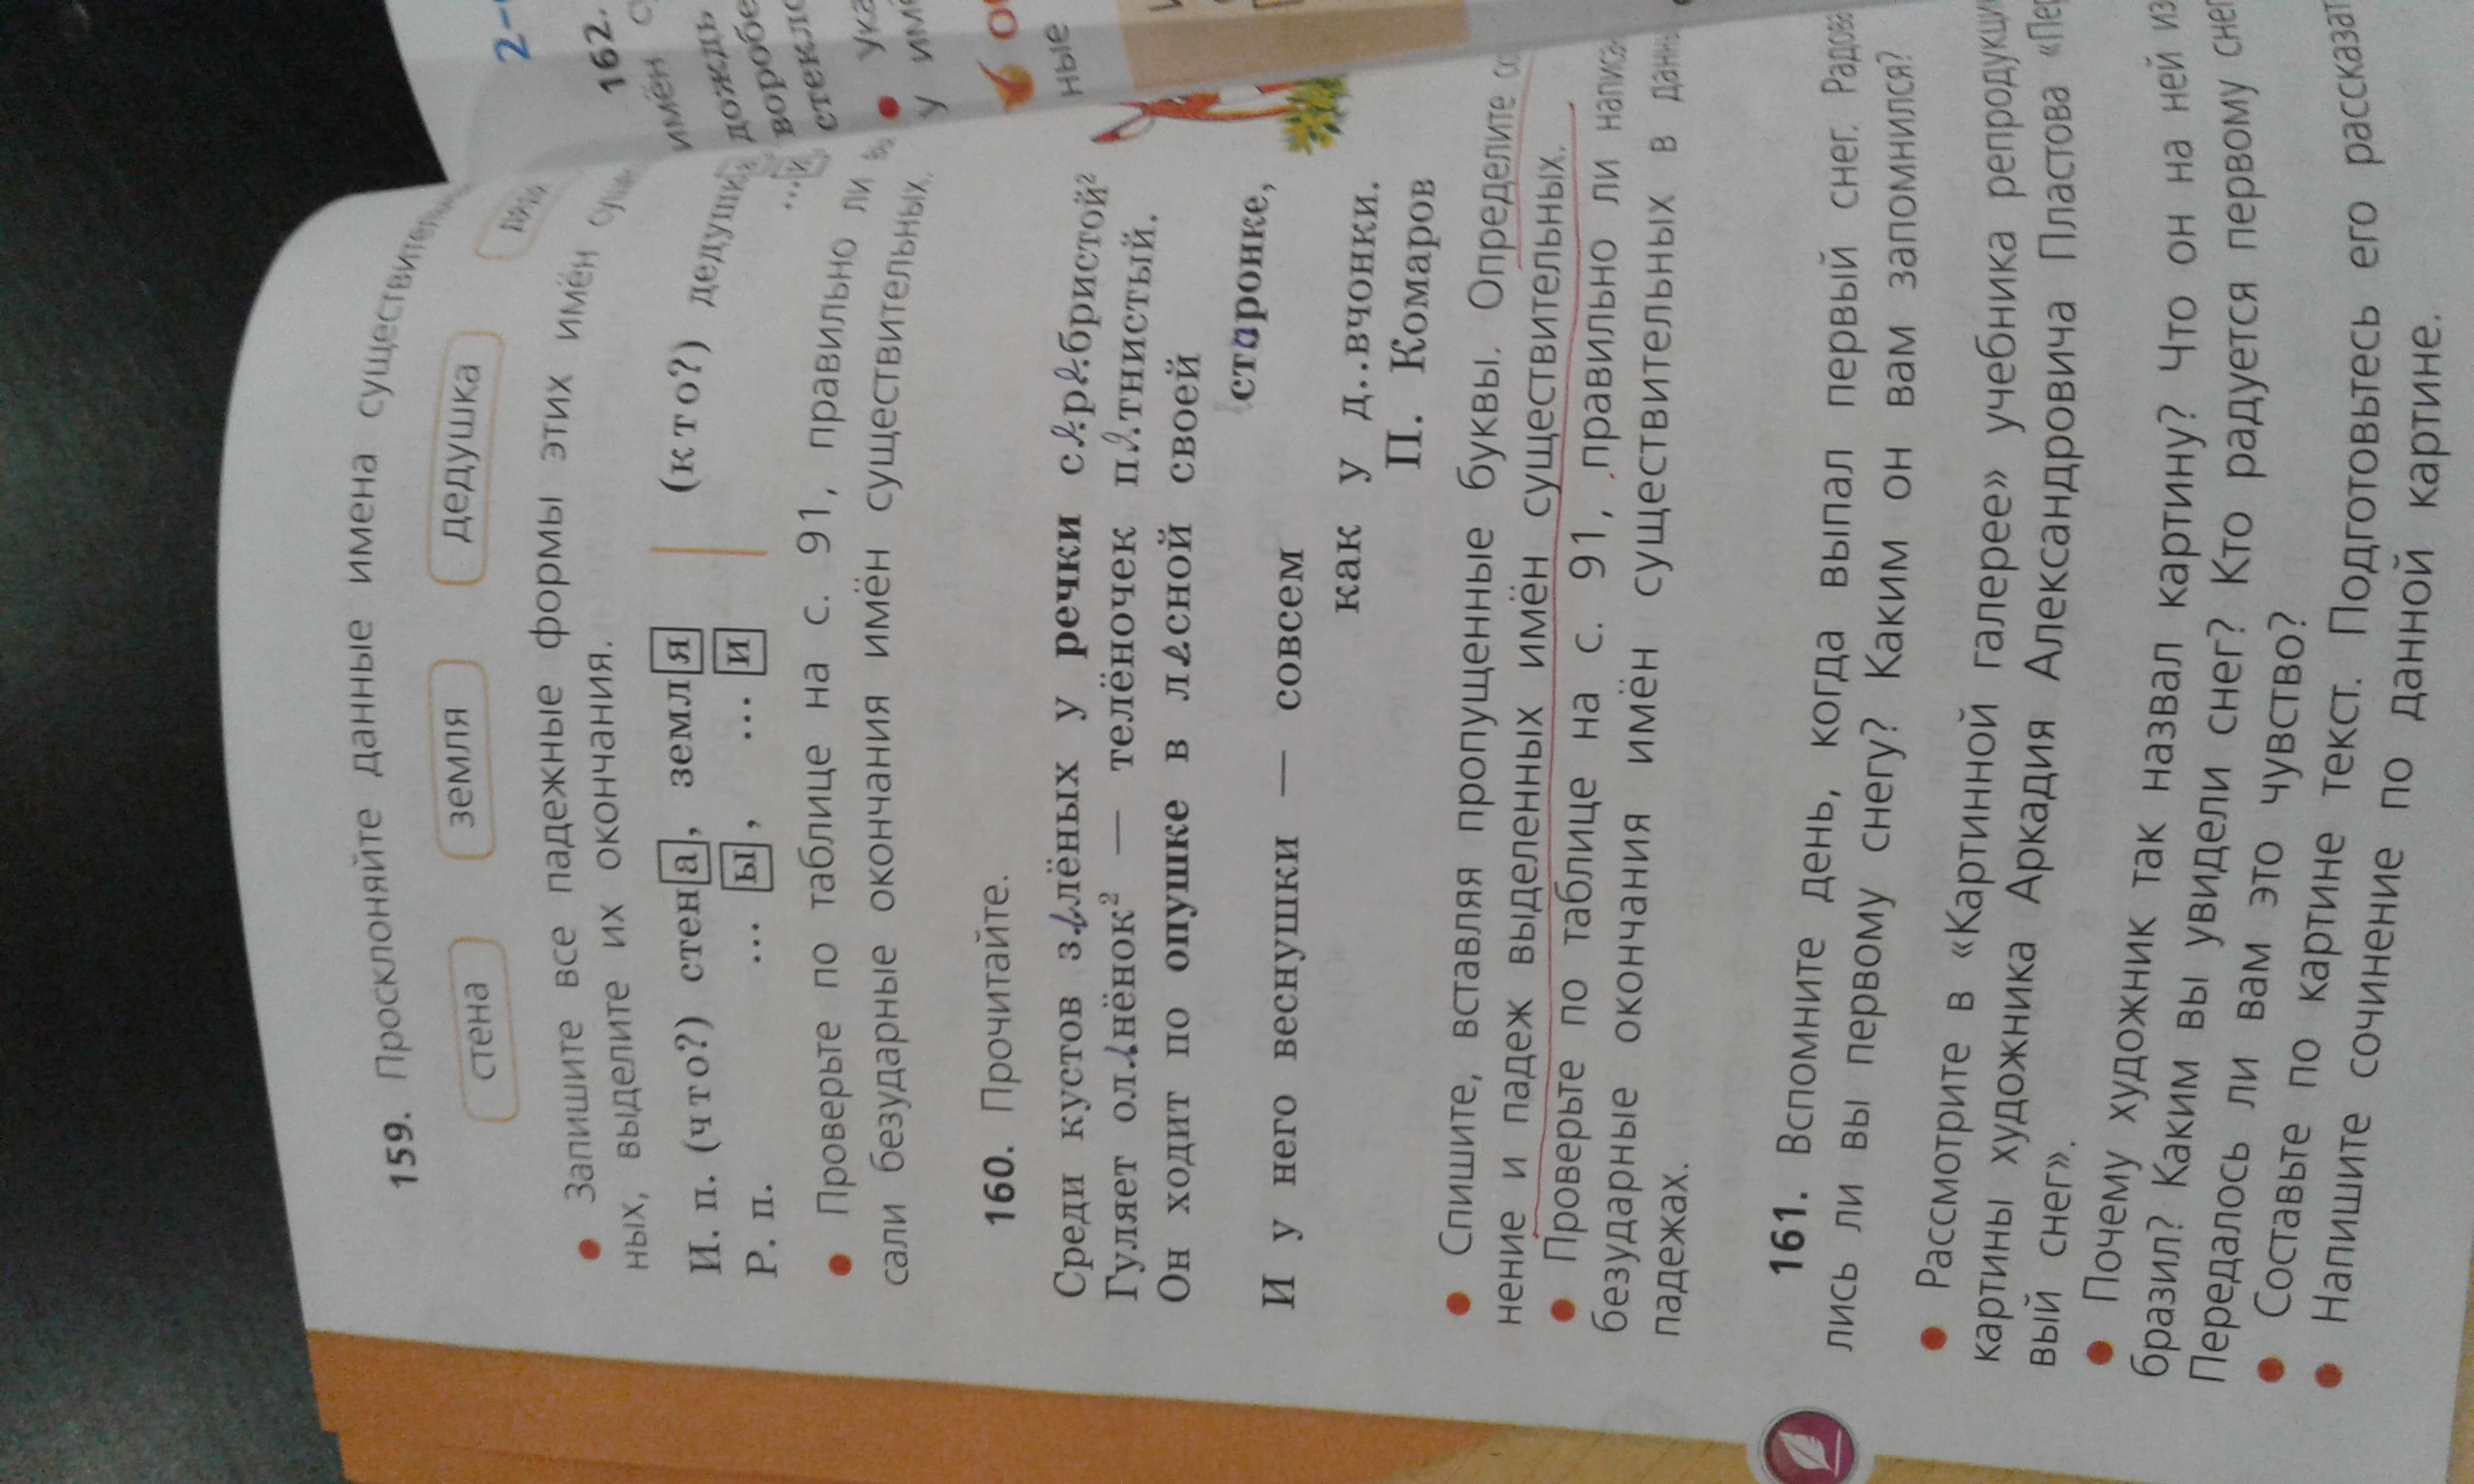 159. Просклоняйте данные имена существительн
стена земля дедушка дядя
• Запишите все падежные формы этих имён сущ
ных, выделите их окончания.
И. п. (что?) стена, земля (кто?) дедушка
Р. п. ... ы, ... и ... и
• Проверьте по таблице на с. 91, правильно ли
сали безударные окончания имён существительных.
160. Прочитайте.
Среди кустов зелёных у речки серебристой²
Гуляет оленёнок² — телёночек пятнистый.
Он ходит по опушке в лесной своей
старонке,
И у него веснушки — совсем
как у д..вчонки.
П. Комаров
• Спишите, вставляя пропущенные буквы. Определите
нение и падеж выделенных имён существительных.
• Проверьте по таблице на с. 91, правильно ли написа
безударные окончания имён существительных в данн
падежах.
161. Вспомните день, когда выпал первый снег. Радова
лись ли вы первому снегу? Каким он вам запомнился?
• Рассмотрите в «Картинной галерее» учебника репродукци
картины художника Аркадия Александровича Пластова «Пер
вый снег».
• Почему художник так назвал картину? Что он на ней из
бразил? Каким вы увидели снег? Кто радуется первому снег
Передалось ли вам это чувство?
• Составьте по картине текст. Подготовьтесь его рассказат
• Напишите сочинение по данной картине.
2-
162.
имён су
дождь
воробе
стекло
• Ука
у имё
ные